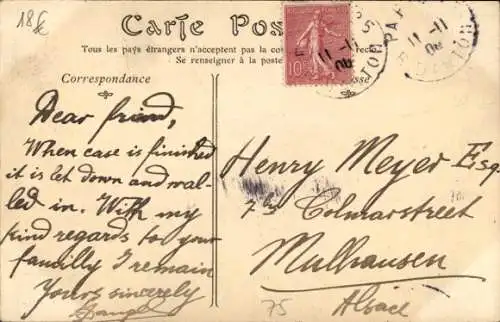 18€
Carte Pos
Tous les pays étrangers n'acceptent pas la co
Se renseigner à la poste
Correspondance
esse
10
PA
11-11
Dear friend,
When case is finished
it is let down and wal-
led in. With my
kind regards to your
familly I remain
Yours sincerely
Henry Meyer Esq.
Colmarstreet
Mulhausen
Alsace
75